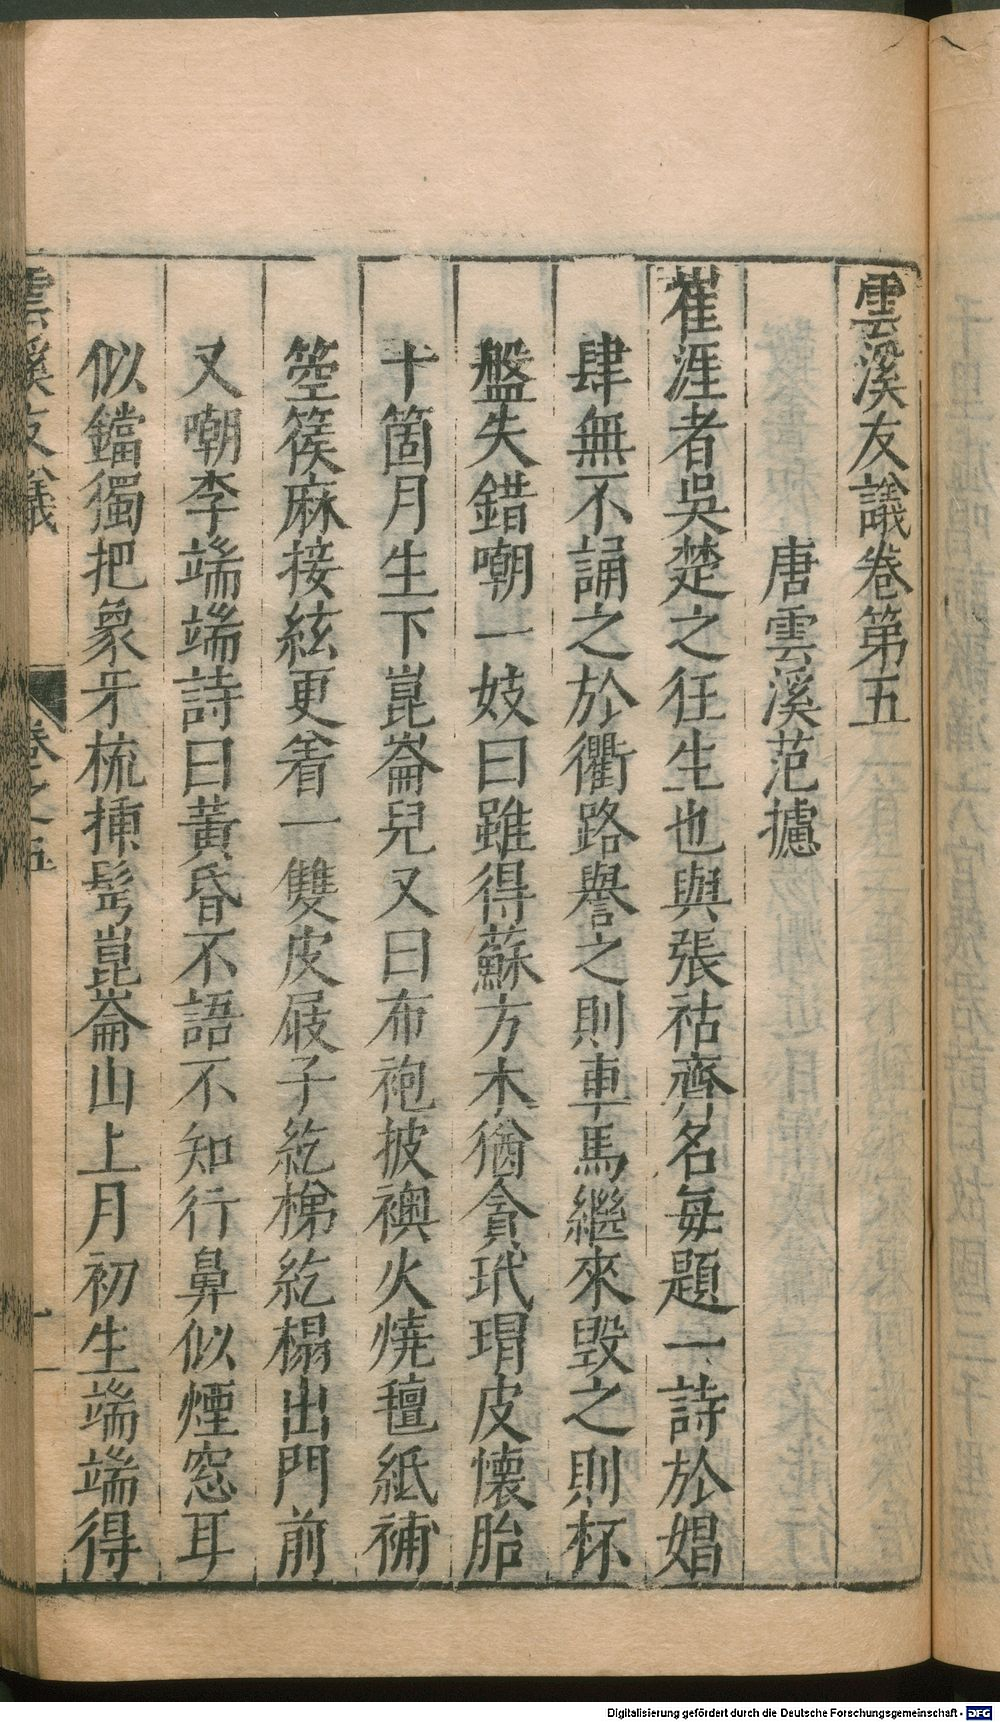 雲溪友議卷第五
唐雲溪范攄
崔涯者吳楚之狂生也與張祜齊名每題一詩於娼
肆無不誦之於衢路譽之則車馬繼來毀之則杯
盤失錯嘲一妓曰雖得蘇方木猶貪玳瑁皮懷胎
十箇月生下崑崙兒又曰布袍披襖火燒氊紙補
箜篌麻接絃更着一雙皮屐子紇梯紇榻出門前
又嘲李端端詩曰黃昏不語不知行鼻似煙窓耳
似鐺獨把象牙梳揷髩崑崙山上月初生端端得
雲溪友議
卷之五
一
Digitalisierung gefördert durch die Deutsche Forschungsgemeinschaft - DFG